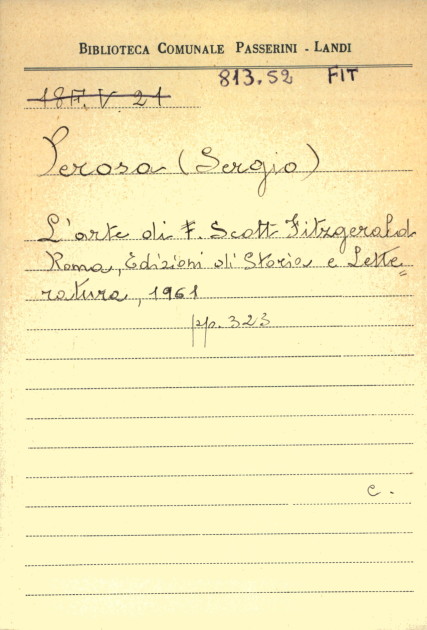 BIBLIOTECA COMUNALE PASSERINI - LANDI
813.52 FIT
18F. V. 21
Perosa (Sergio)
L'arte di F. Scott Fitzgerald
Roma, Edizioni di Storia e Lette=
ratura, 1961
pp. 323
c.